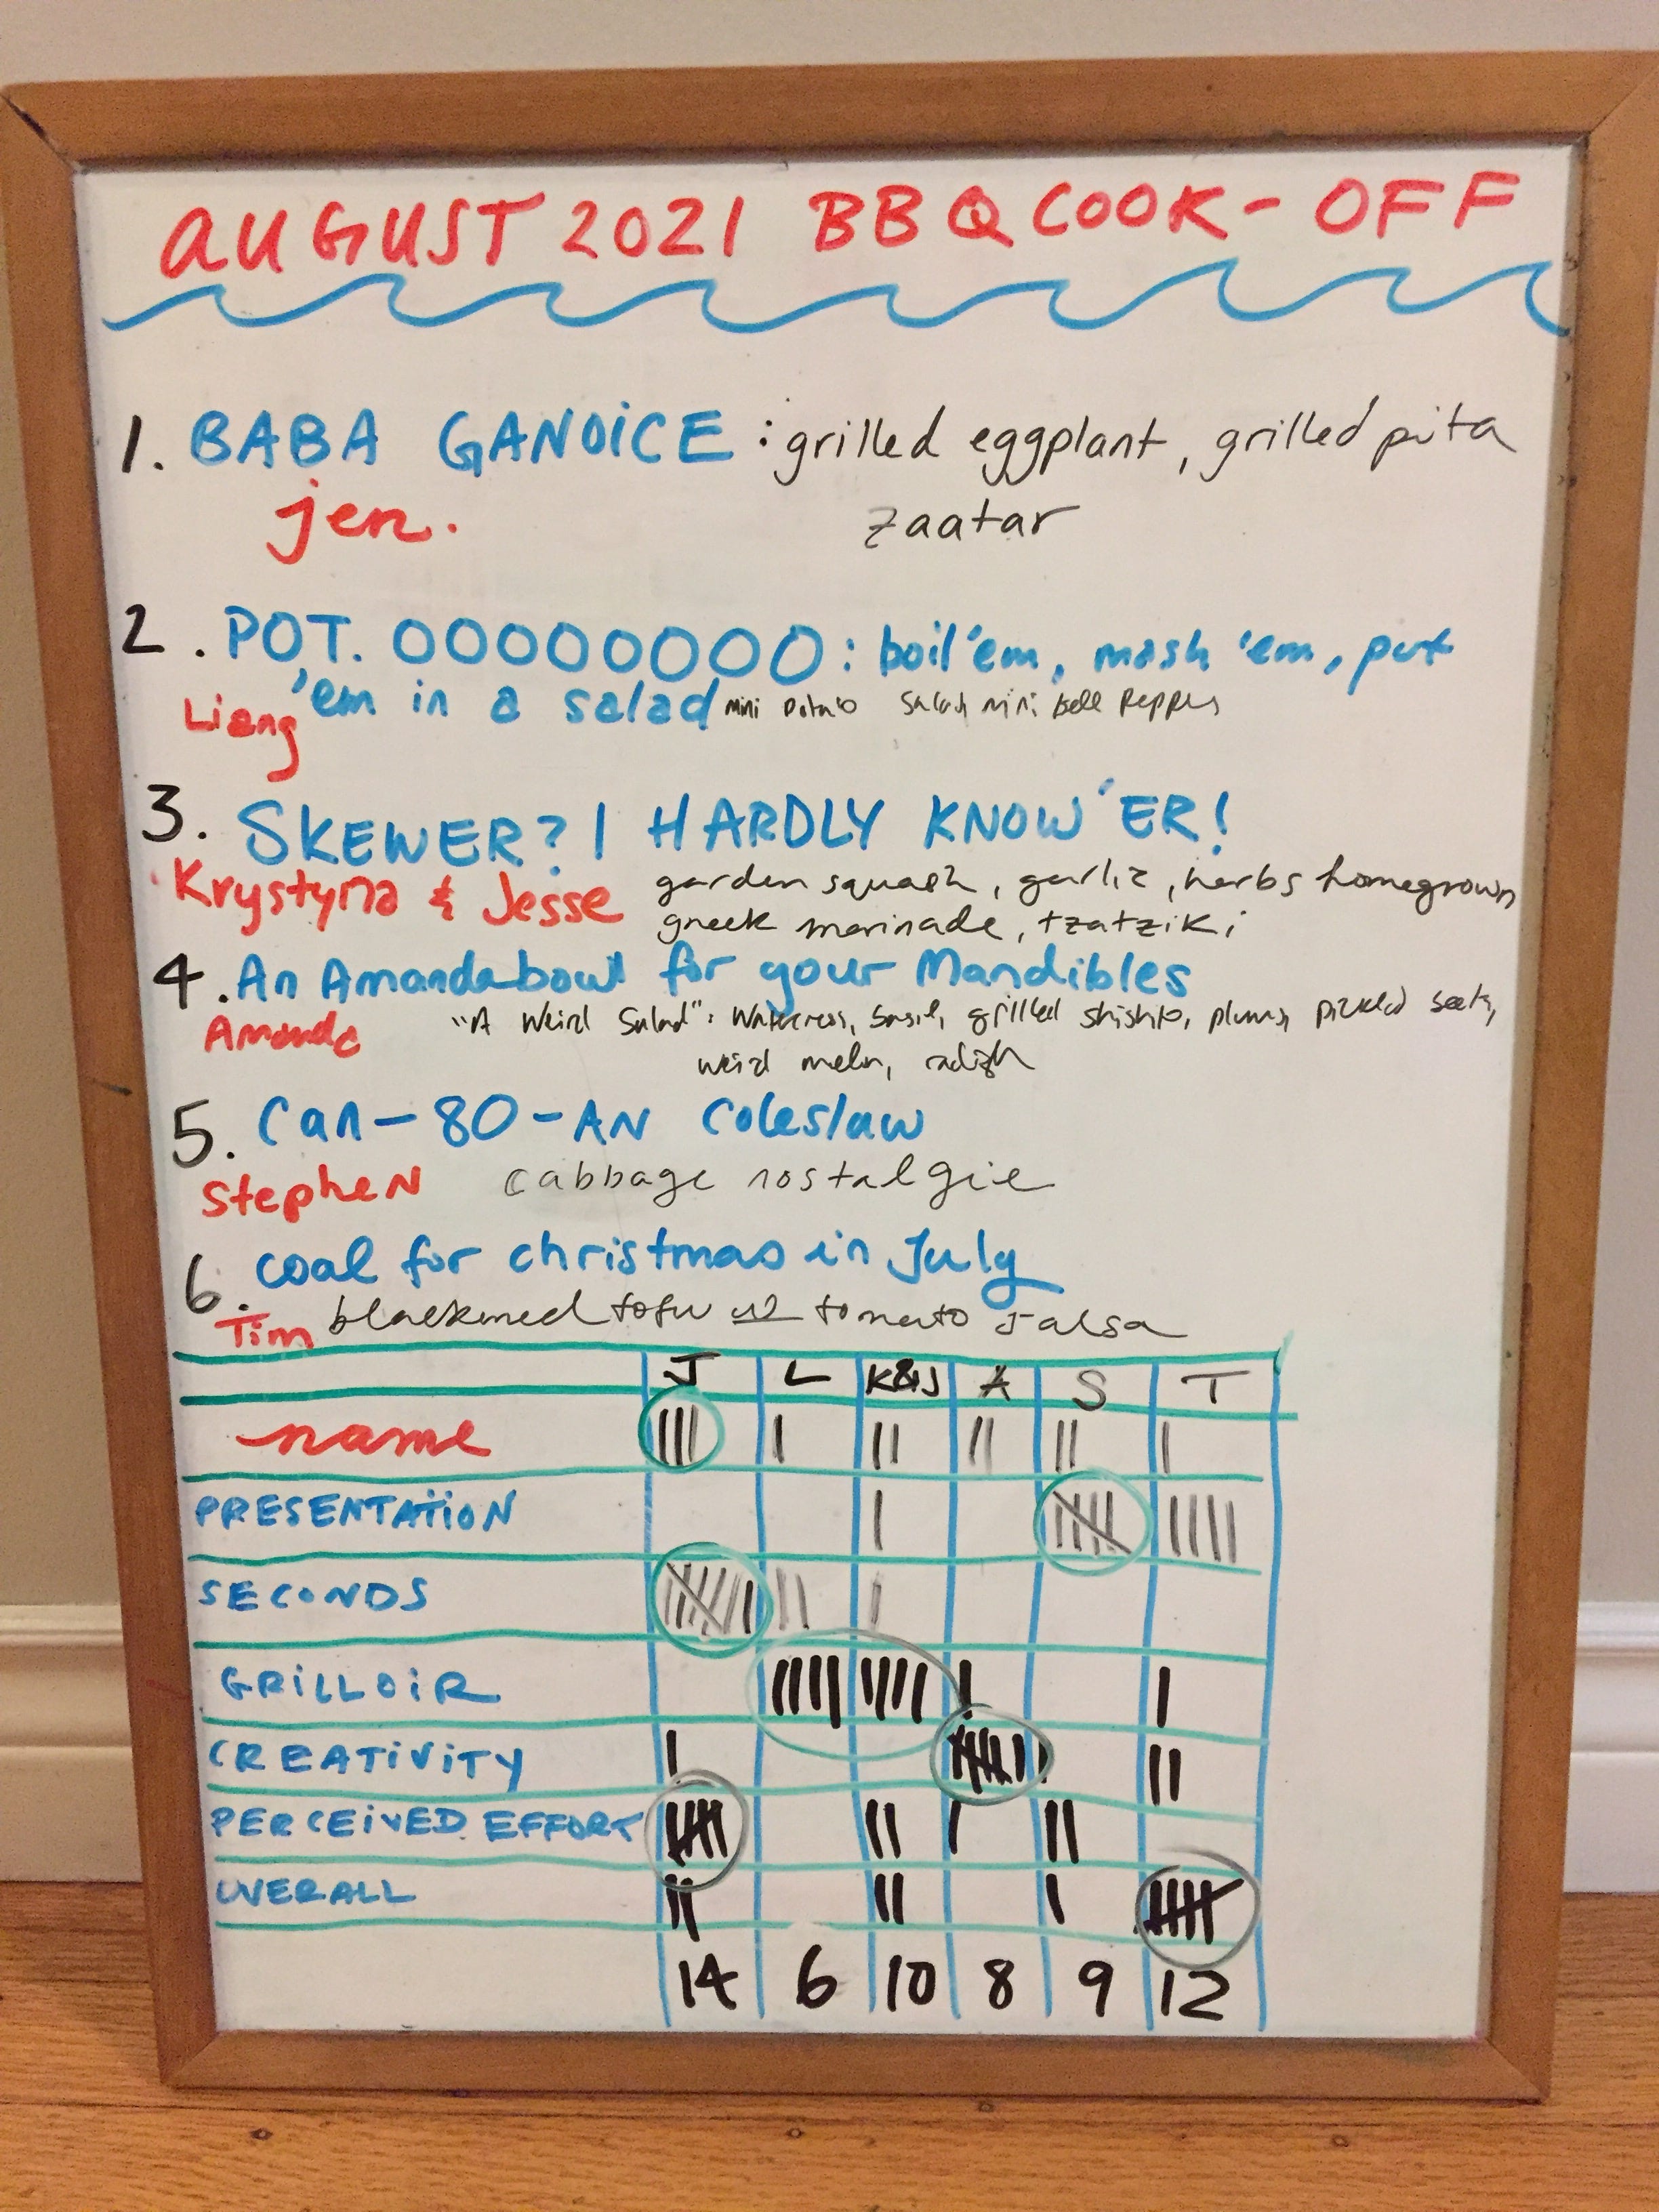 AUGUST 2021 BBQ COOK-OFF
1. BABA GANOICE : grilled eggplant, grilled pita
jen. zaatar
2. POT. OOOOOOOO : boil 'em, mash 'em, put
'em in a salad mini potato salad, mini bell peppers
Liang
3. SKEWER? I HARDLY KNOW 'ER!
Krystyna & Jesse garden squash, garlic, herbs homegrown
greek marinade, tzatziki
4. An Amandabowl for your Mandibles
Amanda "A Weird Salad": Watercress, basil, grilled shishito, plums, pickled beets,
weird melon, radish
5. Can-80-AN Coleslaw
Stephen cabbage nostalgie
6. coal for christmas in July
Tim blackened tofu w/ tomato salsa
J L K&J A S T
name
PRESENTATION
SECONDS
GRILLOIR
CREATIVITY
PERCEIVED EFFORT
OVERALL
14 6 10 8 9 12